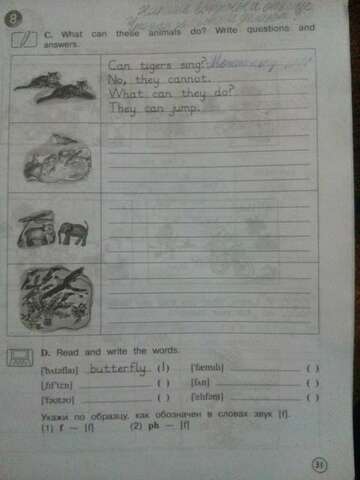 8
C. What can these animals do? Write questions and
answers.
Can tigers sing?
No, they cannot.
What can they do?
They can jump.
D. Read and write the words.
['bʌtəflaɪ] butterfly (1)
['fæmɪlɪ] ( )
[ˌfɪf'tiːn] ( )
[fʌn] ( )
['fəʊtəʊ] ( )
['elɪfənt] ( )
Укажи по образцу, как обозначен в словах звук [f].
(1) f — [f] (2) ph — [f]
31